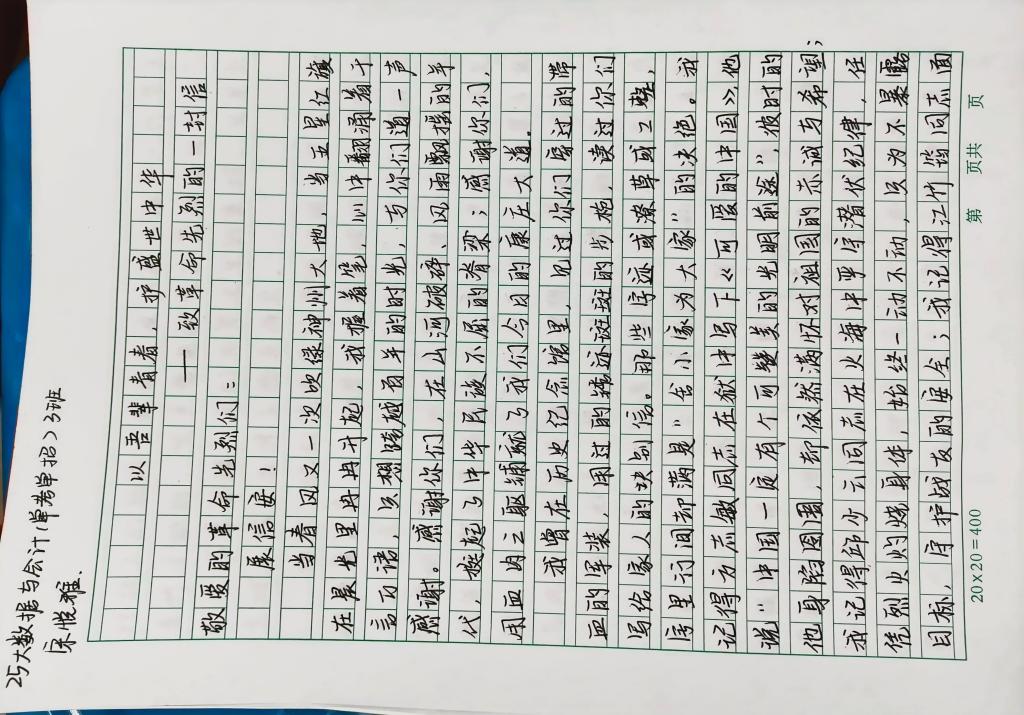 25大数据与会计(单考单招)3班
宋悦雅.
以吾辈青春，护盛世中华
——致革命先烈的一封信
敬爱的革命先烈们：
展信安！
当春风又一次吹绿神州大地，当五星红旗
在晨光里冉冉升起，我握着笔，心中翻涌着千
言万语，只想跨越百年的时光，与你们道一声
感谢。感谢你们，在山河破碎、风雨飘摇的年
代，挺起了中华民族不屈的脊梁；感谢你们，
用血肉之躯铺就了我们今日的康庄大道。
我曾在历史纪念馆里，见过你们穿过的带
血的军装，用过的锈迹斑斑的步枪，读过你们
写给家人的诀别信。那些字迹或潦草或工整，
字里行间却满是“舍小家为大家”的决绝。我
记得方志敏同志在狱中写下《可爱的中国》，他
说“中国一定有个可赞美的光明前途”，彼时的
他身陷囹圄，却依然满怀对祖国的赤诚与希望；
我记得邱少云同志在火海中严守潜伏纪律，任
凭烈火灼烧身体，始终一动不动，只为不暴露
目标，守护战友的安全；我记得江竹筠同志面
20×20=400
第 页共 页